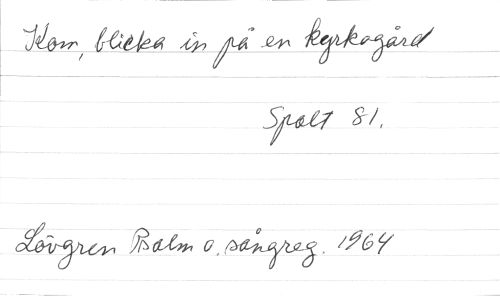 Kom, blicka in på en kyrkogård
Spalt 81.
Lövgren Psalm o. sångreg. 1964